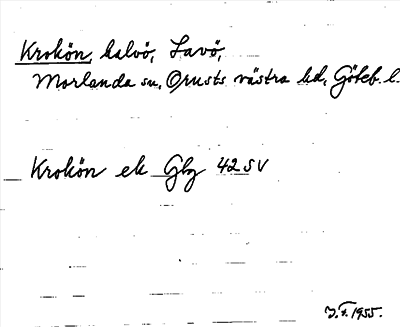 Krokön, halvö, Lavö,
Morlanda sn, Orusts västra hd, Göteb. l.
Krokön ek Gbg 42 SV
1955.